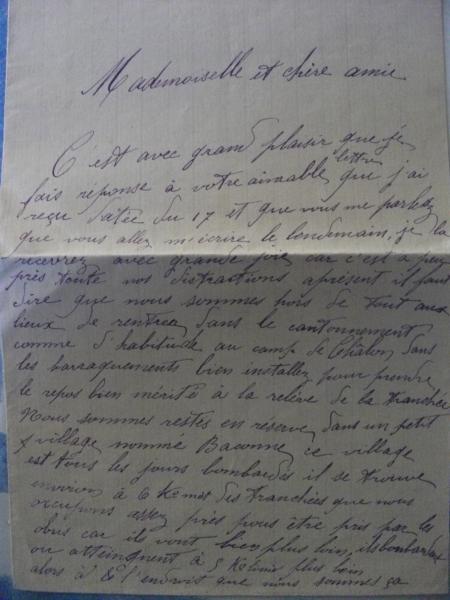 Mademoiselle et chère amie
C'est avec grand plaisir que je
fais réponse à votre aimable lettre que j'ai
reçu datée du 17 et que vous me parlez
que vous allez m'écrire le lendemain, je la
recevrez avec grande joie car c'est à peu
près toute nos distractions apresent il faut
dire que nous sommes hors de tout aux
lieux de rentrer dans le cantonnement
comme d'habitude au camp de Châlon dans
les barraquements bien installez pour prendre
le repos bien mérité à la relève de la tranchée
Nous sommes restés en réserve dans un petit
village nommé Baconne, ce village
est tous les jours bombardés il se trouve
environ à 6 Kemes des tranchées que nous
occupons assez près pous être pris par les
obus car ils vont bien plus loin, ils bombardes
ou atteingnent à plus loin
alors à l'endroit que nous sommes ça